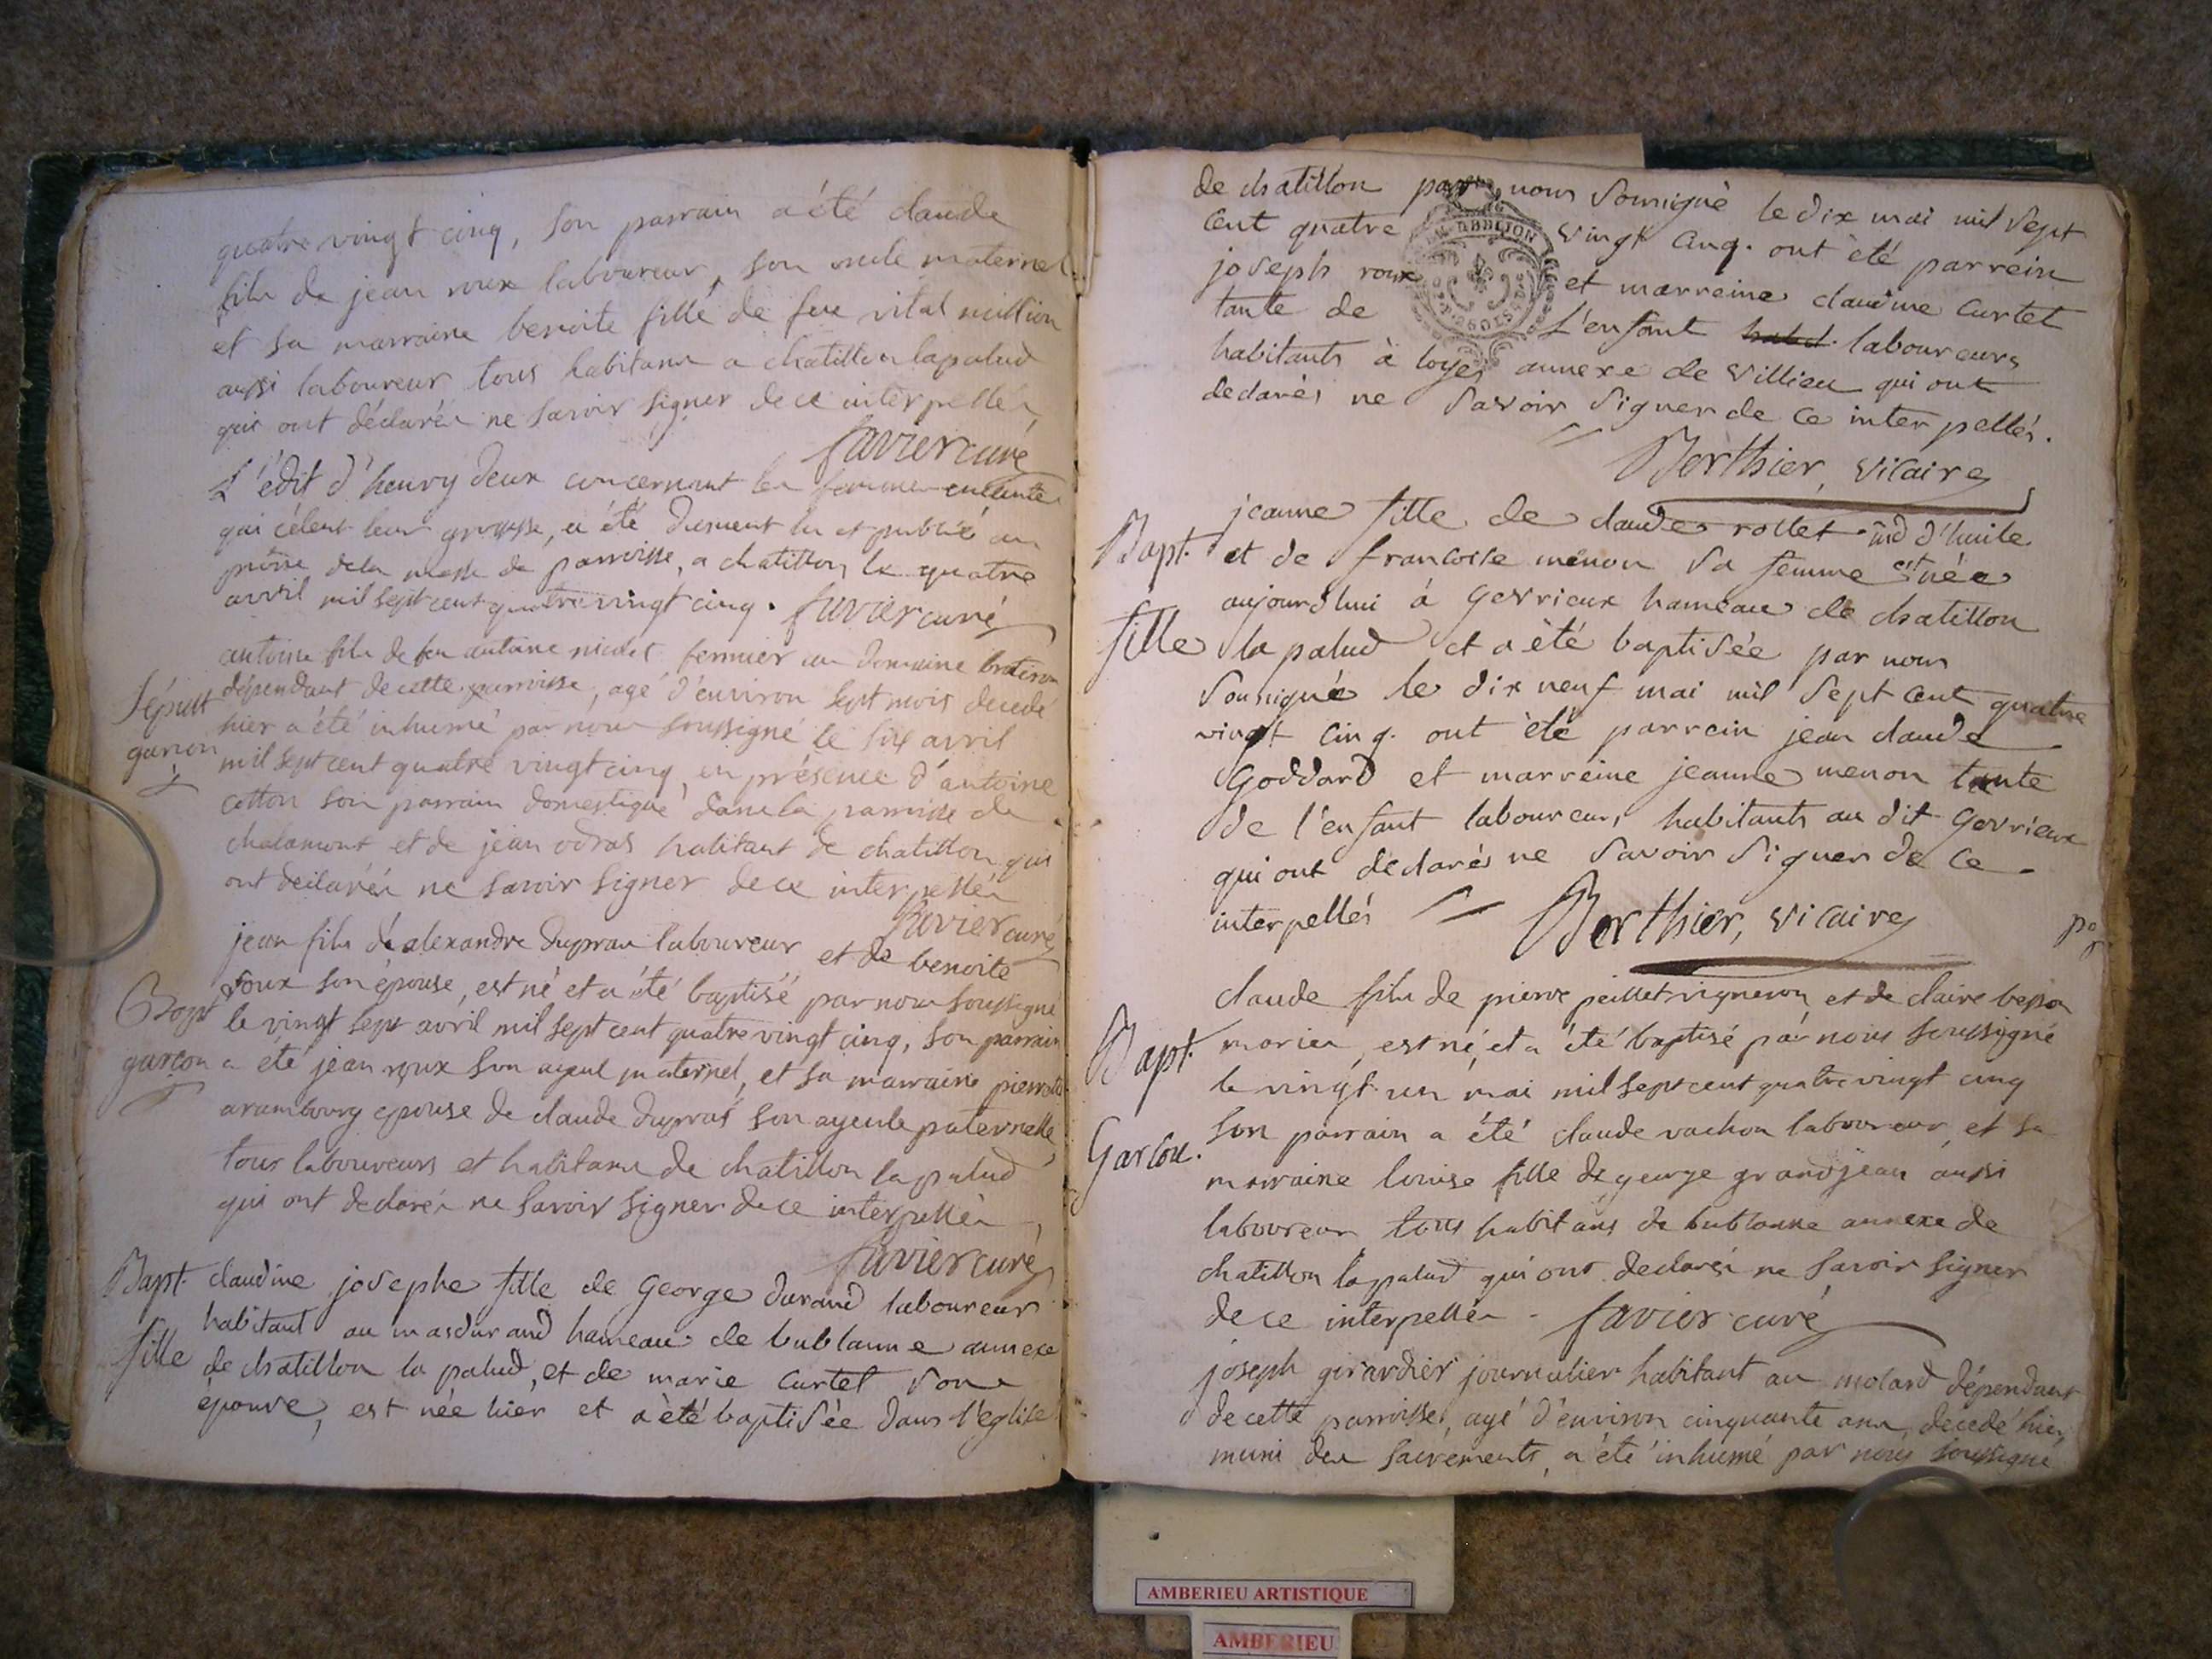 quatre vingt cinq, son parrain a été claude
fils de jean roux laboureur, son oncle maternel
et sa marraine benoite fille de feu vital million
aussi laboureur tous habitans a chatillon lapalud
qui ont déclarés ne savoir signer de ce interpellés
favier curé
L'édit d'henry deux concernant les femmes enceintes
qui célent leur grossesse, a été dument lu et publié au
prône de la messe de parroisse, a chatillon le quatre
avril mil sept cent quatre vingt cinq. favier curé
Sépult
garson
antoine fils de feu antoine nicolet fermier au domaine
dépendant de cette parroisse, agé d'environ sept mois decedé
hier a été inhumé par nous soussigné le six avril
mil sept cent quatre vingt cinq, en présence d'antoine
cotton son parrain domestique dans la parroisse de
chalamont et de jean odras habitant de chatillon qui
ont déclarés ne savoir signer de ce interpellés
favier curé
Bapt
garcon
jean fils de alexandre dupras laboureur et de benoite
roux son épouse, est né et a été baptisé par nous soussigné
le vingt sept avril mil sept cent quatre vingt cinq, son parrain
a été jean roux son ayeul maternel, et sa marraine pierrette
arambourg epouse de claude dupras son ayeule paternelle,
tous laboureurs et habitans de chatillon la palud
qui ont declarés ne savoir signer de ce interpellés
favier curé
Bapt.
fille
claudine josephe fille de George durand laboureur
habitant au masdurand hameau de bublanne annexe
de chatillon la palud, et de marie curtet son
épouse, est née hier et a été baptisée dans l'eglise
de chatillon par nous Sousigné le dix mai mil Sept
cent quatre vingt cinq. ont été parrein
joseph roux et marreine claudine curtet
tante de L'enfant laboureurs
habitants à loyes annexe de villieu qui ont
declarés ne Savoir Signer de ce interpellés.
Berthier, vicaire
Bapt.
fille
jeanne fille de claude rollet md d'huile
et de francoise menon Sa femme est née
aujourdhui à Gevrieux hameau de chatillon
la palud et a été baptisée par nous
Sousigné le dix neuf mai mil Sept cent quatre
vingt cinq. ont été parrein jean claude
Goddard et marreine jeanne menon tante
de l'enfant laboureurs habitants au dit Gevrieux
qui ont declarés ne Savoir Signer de ce
interpellés Berthier, vicaire
Bapt.
Garcon.
claude fils de pierre peillet vigneron, et de claire besson
mariés, est né, et a été baptisé par nous soussigné
le vingt un mai mil sept cent quatre vingt cinq
son parrain a été claude vachon laboureur, et sa
marraine louise fille de george grandjean aussi
laboureur tous habitans de bublanne annexe de
chatillon lapalud qui ont declarés ne savoir signer
de ce interpellés - favier curé
joseph girardier journalier habitant au molard dépendant
de cette parroisse, agé d'environ cinquante ans, decedé hier,
muni des sacrements, a été inhumé par nous soussigné
AMBERIEU ARTISTIQUE
AMBERIEU